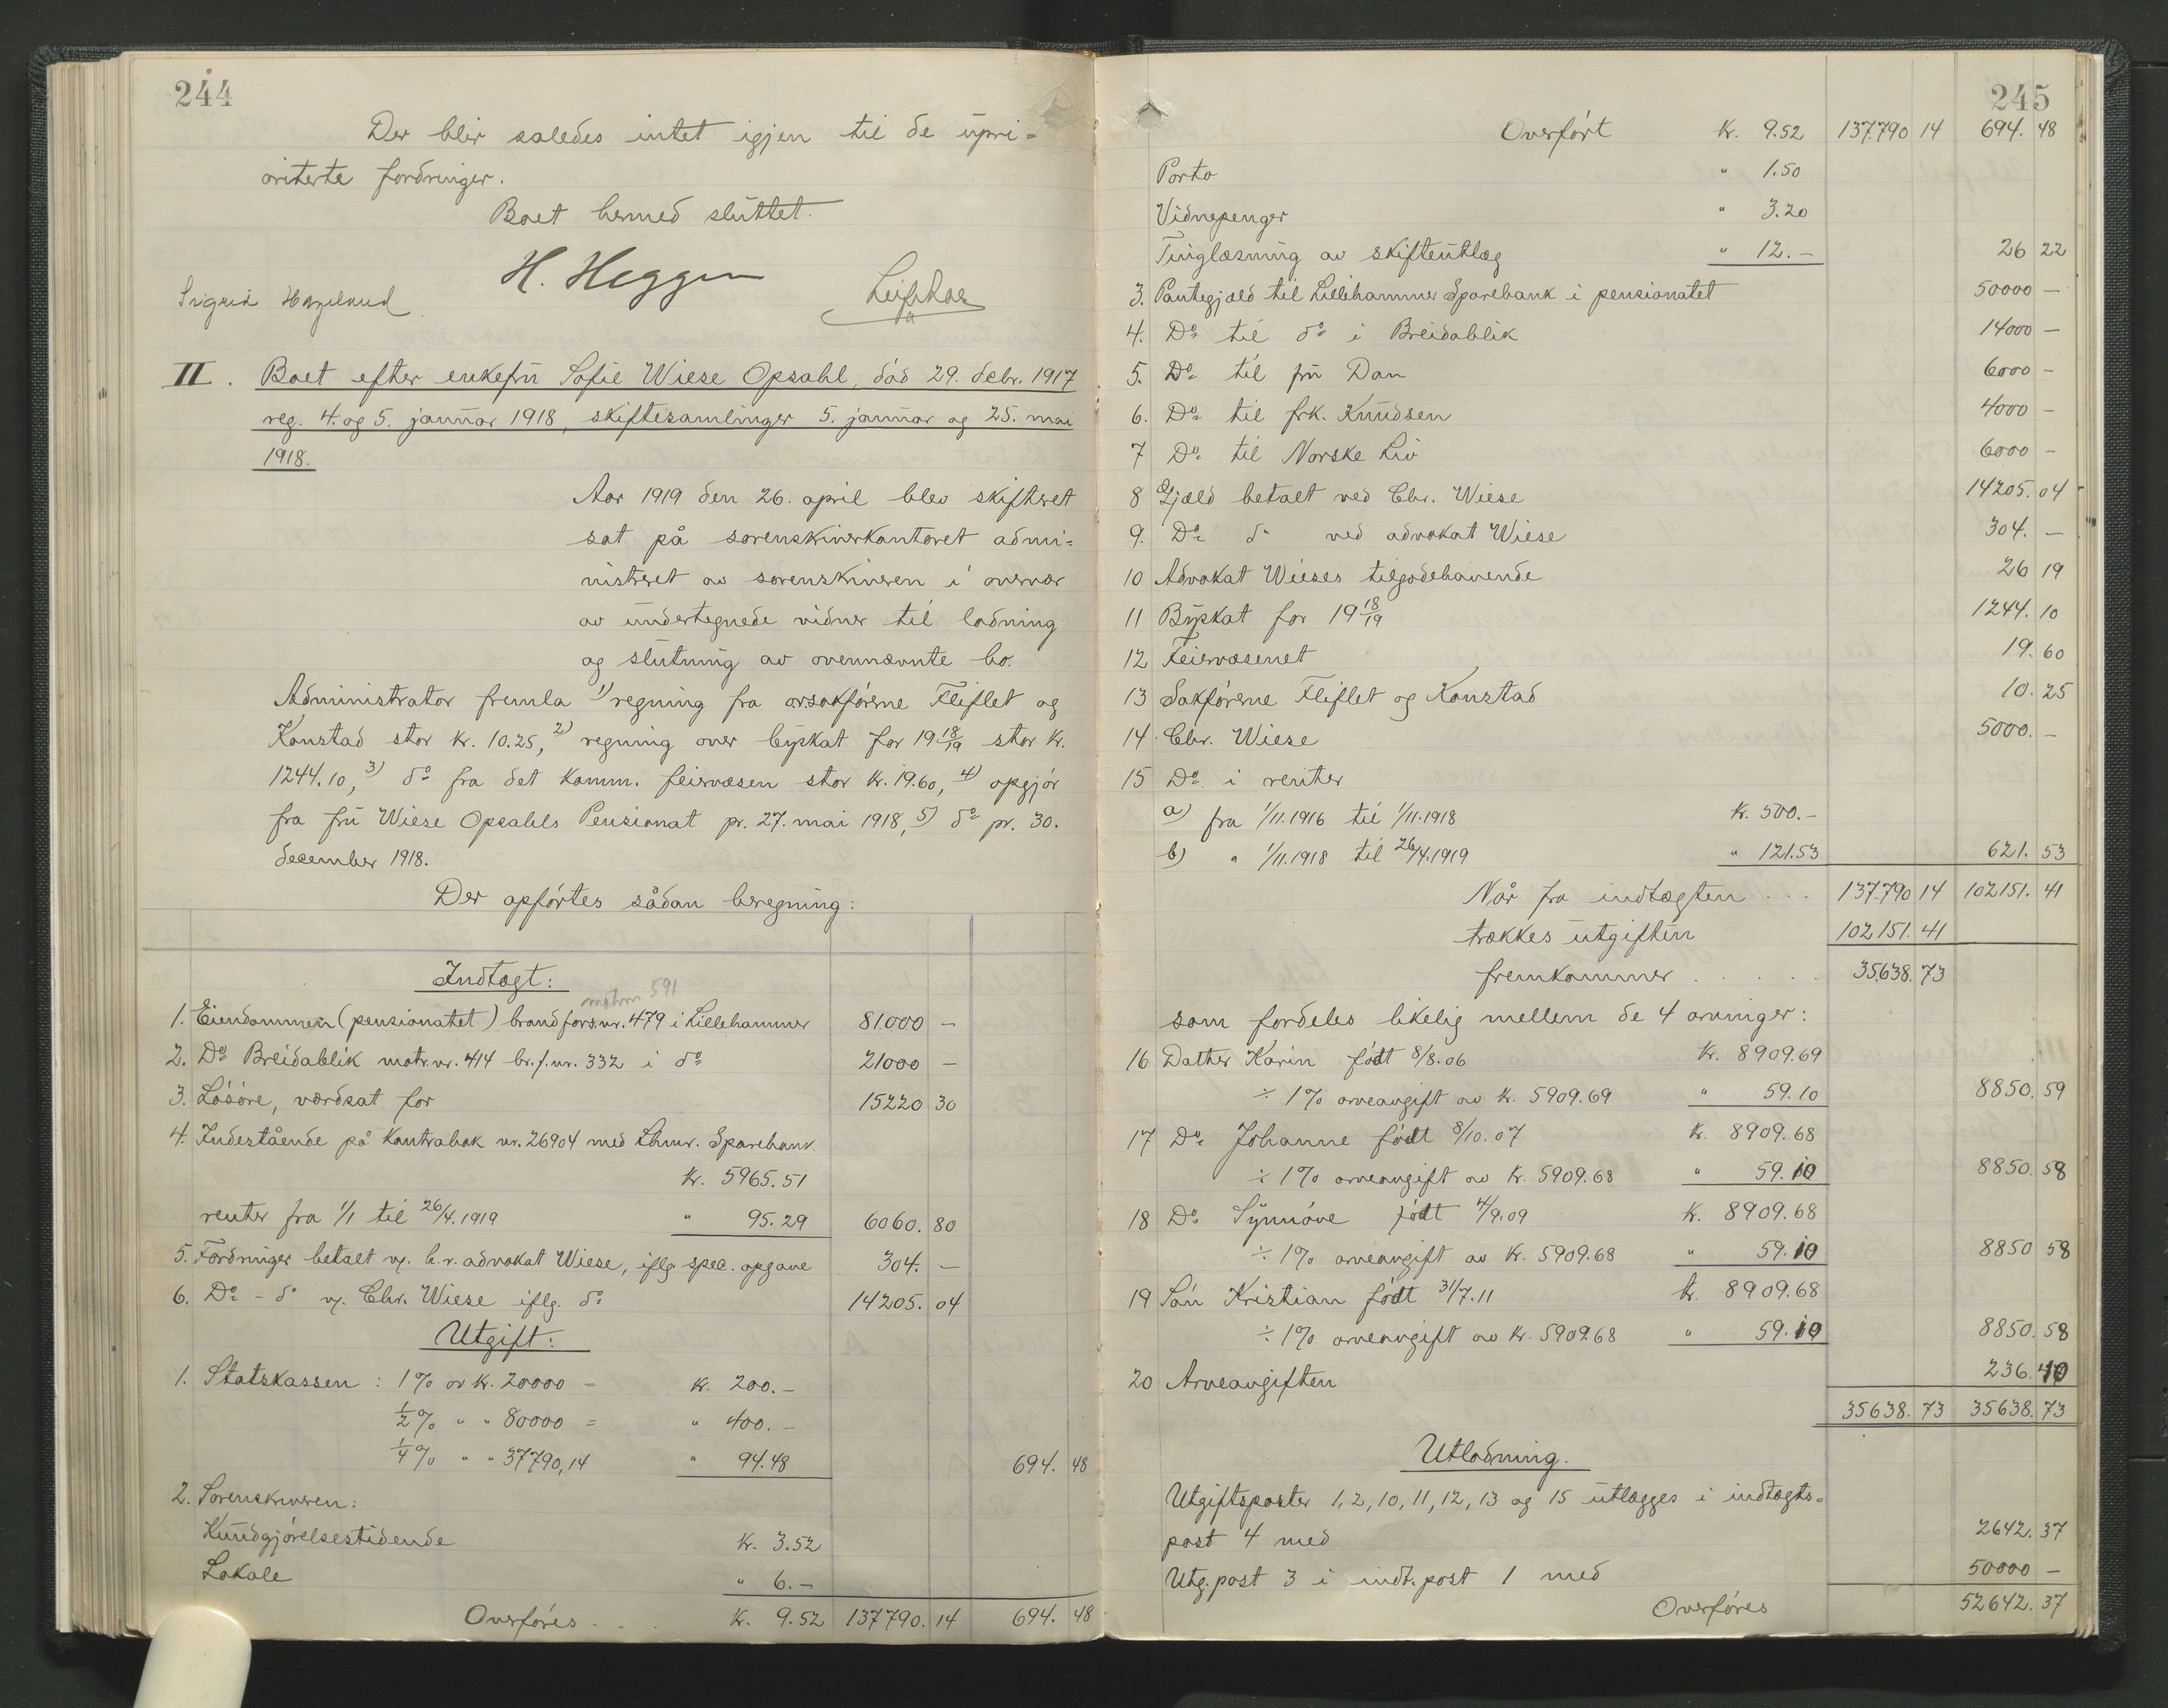 244
Der blir saledes intet igjen til de upri=
oriterte fordringer.
Boet hermed sluttet.
H. Heggen
Sigrid
II. Boet efter enkefru Sofie Wiese Opsahl, död 29. debr. 1917
reg. 4. og 5. januar 1918, skiftesamlinger 5. januar og 25. mai
1918.
Aar 1919 den 26. april blev skifteret
sat på sorenskriverkontoret admi=
nistreret av sorenskriveren i overvær
av undertegnede vidner til lodning
og slutning av ovennævnte bo.
Administrator fremla 1) regning fra o.r.sakförerne Fliflet og
Konstad stor kr. 10.25, 2) regning over byskat for 19 18/19 stor kr.
1244.10, 3) do fra det komm. feiervæsen stor kr. 19.60, 4) opgjör
fra fru Wiese Opsahls Pensionat pr. 27. mai 1918, 5) do pr. 30.
december 1918.
Der opförtes sådan beregning:
Indtægt:
matrnr 591
1. Eiendommen (pensionatet) brandfors.nr. 479 i Lillehammer 81.000 —
2. Do Breidablik matr.nr. 414 br.f.nr. 332 i do 21000 —
3. Lösöre, værdsat for 15220 30
4. Indestående på kontrabok nr. 26904 med Lhmr. Sparebank
Kr. 5965.51
renter fra 1/1 til 26/4.1919 " 95.29 6060. 80
5. Fordringer betalt v. h.r. advokat Wiese, iflg. spec. opgave 304. —
6. Do - do v. Chr. Wiese iflg. do 14205. 04
Utgift:
1. Statskassen: 1% av kr. 20000 = kr. 200.—
1/2% " " 80000 = " 400.—
1/4% " " 37790,14 " 94.48 694. 48
2. Sorenskriveren:
Kundgjörelsestidende kr. 3.52
Lokale " 6.—
Overföres . . . kr. 9.52 137790. 14 694. 48
245
Overfört kr. 9.52 137.790 14 694. 48
Porto " 1.50
Vidnepenger " 3.20
Tinglæsning av skifteutlæg " 12.— 26 22
3. Pantegjæld til Lillehammer Sparebank i pensionatet 50000 —
4. Do til do i Breidablik 14000 —
5. Do til fru Dan 6000 —
6. Do til frk. Knudsen 4000 —
7 Do til Norske Liv 6000 —
8 Gjæld betalt ved Chr. Wiese 14205. 04
9. Do do ved advokat Wiese 304. —
10 Advokat Wieses tilgodehavende 26 19
11 Byskat for 19 18/19 1244. 10
12 Feiervæsenet 19. 60
13 Sakförerne Fliflet og Konstad 10. 25
14 Chr. Wiese 5000. —
15 Do i renter
a) fra 1/11.1916 til 1/11.1918 kr. 500.—
b) " 1/11.1918 til 26/4.1919 " 121.53 621. 53
Når fra indtægten . . . 137.790 14 102151. 41
trækkes utgiften 102151. 41
fremkommer . . . . . 35638. 73
som fordeles likelig mellem de 4 arvinger:
16 Datter Karin född 8/8.06 kr. 8909.69
÷ 1% arveavgift av kr. 5909.69 " 59.10 8850. 59
17 Do Johanne födt 8/10.07 kr. 8909.68
÷ 1% arveavgift av kr. 5909.68 " 59.10 8850. 58
18 Do Synnöve födt 4/9.09 kr. 8909.68
÷ 1% arveavgift av kr. 5909.68 " 59.10 8850 58
19 Sön Kristian födt 31/7.11 kr. 8909.68
÷ 1% arveavgift av kr. 5909.68 " 59.10 8850. 58
20 Arveavgiften 236. 40
35638. 73 35638. 73
Utlodning.
Utgiftsposter 1, 2, 10, 11, 12, 13 og 15 utlægges i indtægts-
post 4 med 2642. 37
Utg.post 3 i indt.post 1 med 50000 —
Overföres 52642. 37